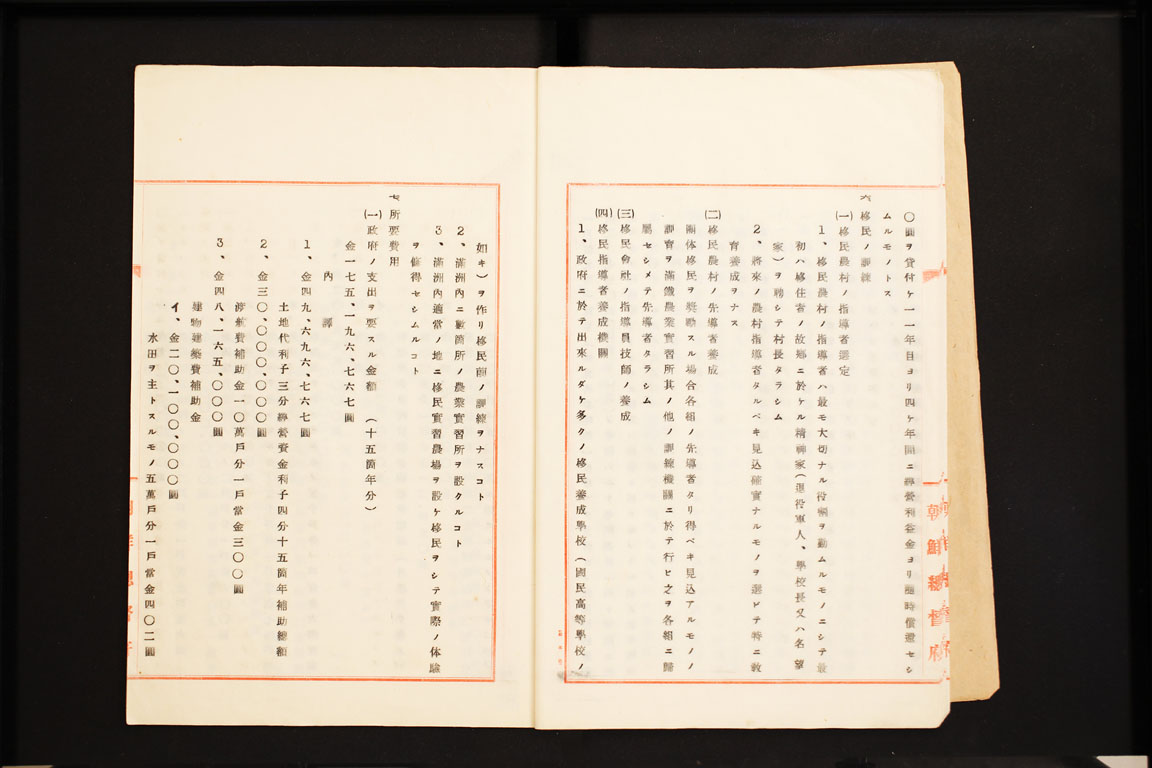 〇圓ヲ貸付ケ一一年目ヨリ四ケ年間ニ經營利益金ヨリ隨時償還セシ
ムルモノトス
六 移民ノ訓練
(一)移民農村ノ指導者選定
1、移民農村ノ指導者ハ最モ大切ナル役割ヲ勤ムルモノニシテ最
初ハ移住者ノ故鄕ニ於ケル精神家(退役軍人、學校長又ハ名望
家)ヲ聘シテ村長タラシム
2、將來ノ農村指導者タルベキ見込確實ナルモノヲ選ビテ特ニ敎
育養成ヲナス
(二)移民農村ノ先導者養成
團体移民ヲ奬勵スル場合各組ノ先導者タリ得ベキ見込アルモノノ
訓育ヲ滿鐵農業實習所其ノ他ノ訓練機關ニ於テ行ヒ之ヲ各組ニ歸
屬セシメテ先導者タラシム
(三)移民會社ノ指導員技師ノ養成
(四)移民指導者養成機關
1、政府ニ於テ出來ルダケ多クノ移民養成學校(國民高等學校ノ
朝鮮總督府
如キ)ヲ作リ移民師ノ訓練ヲナスコト
2、滿洲內ニ數箇所ノ農業實習所ヲ設クルコト
3、滿洲內適當ノ地ニ移民實習農場ヲ設ケ移民ヲシテ實際ノ体驗
ヲ修得セシムルコト
七 所要費用
(一)政府ノ支出ヲ要スル金額 (十五箇年分)
金一七五、一九六、七六七圓
內譯
1、金四九、六九六、七六七圓
土地代利子三分經營資金利子四分十五箇年補助總額
2、金三〇、〇〇〇、〇〇〇圓
渡航費補助金一〇萬戶分一戶當金三〇〇圓
3、金四八、一六五、〇〇〇圓
建物建築費補助金
イ、金二〇、一〇〇、〇〇〇圓
水田ヲ主トスルモノ五萬戶分一戶當金四〇二圓